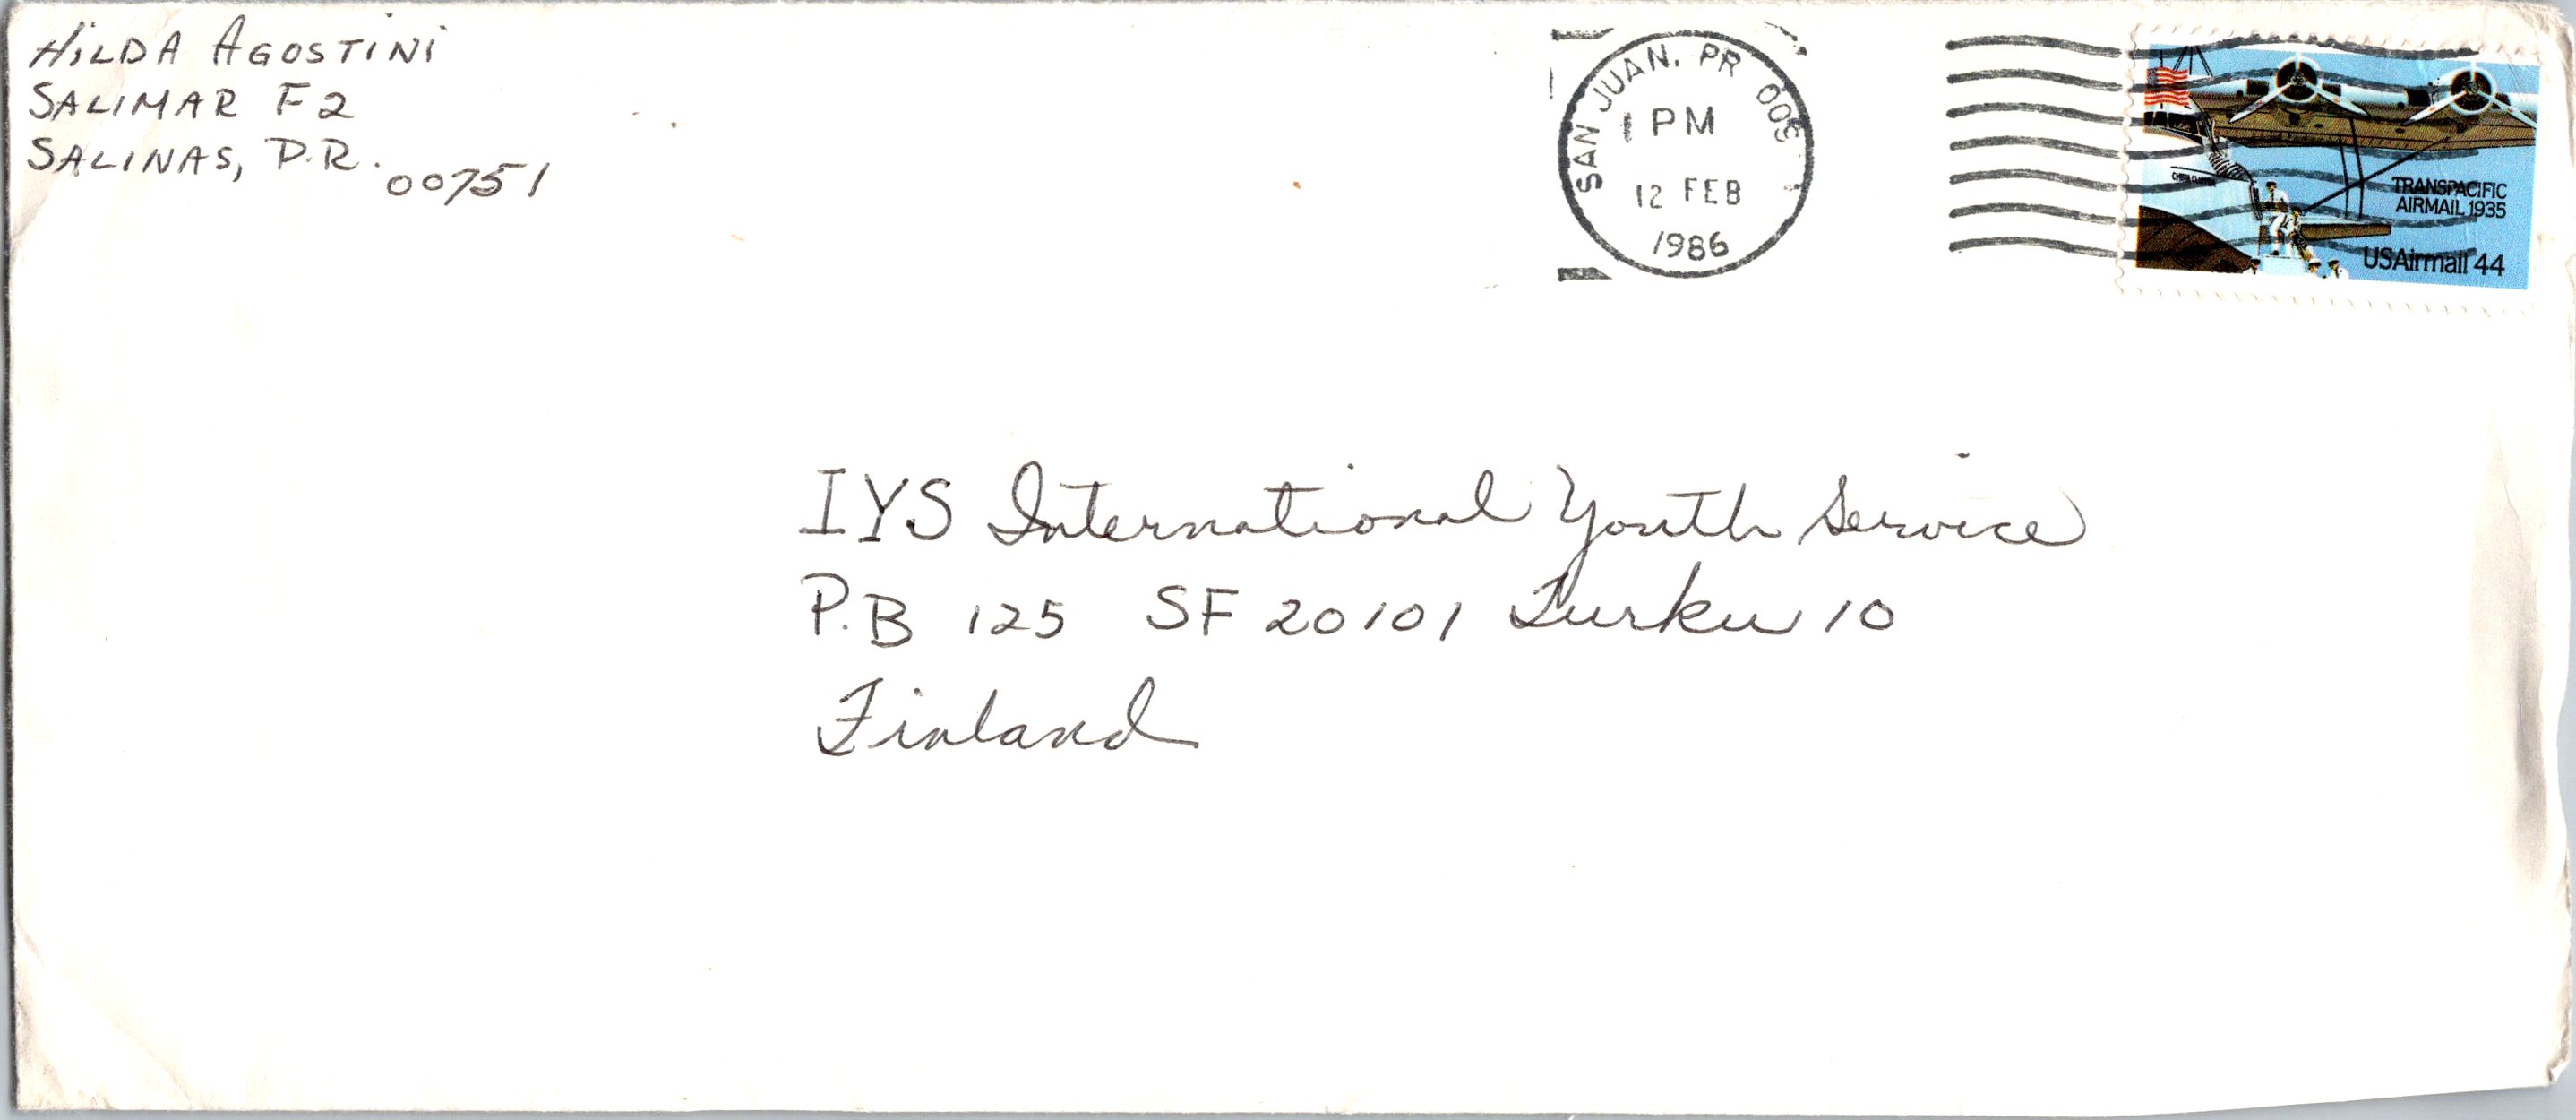 HILDA AGOSTINI
SALIMAR F2
SALINAS, P.R. 00751
SAN JUAN, PR 009
1 PM
12 FEB
1986
TRANSPACIFIC
AIRMAIL 1935
USAirmail 44
IYS International Youth Service
P.B 125 SF 20101 Turku 10
Finland